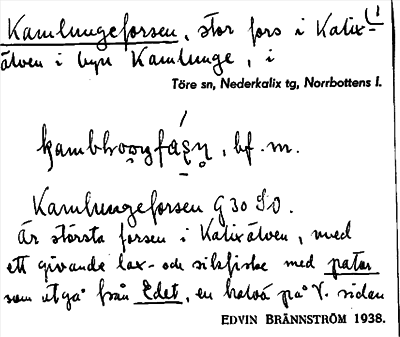 Kamlungeforsen, stor fors i Kalix-
älven i byn Kamlunge, i
Töre sn, Nederkalix tg, Norrbottens l.
bf. m.
Kamlungeforsen G 30 SO.
Är största forsen i Kalixälven, med
ett givande lax- och sikfiske med patar
som utgå från Edet, en halvö på V. sidan
EDVIN BRÄNNSTRÖM 1938.